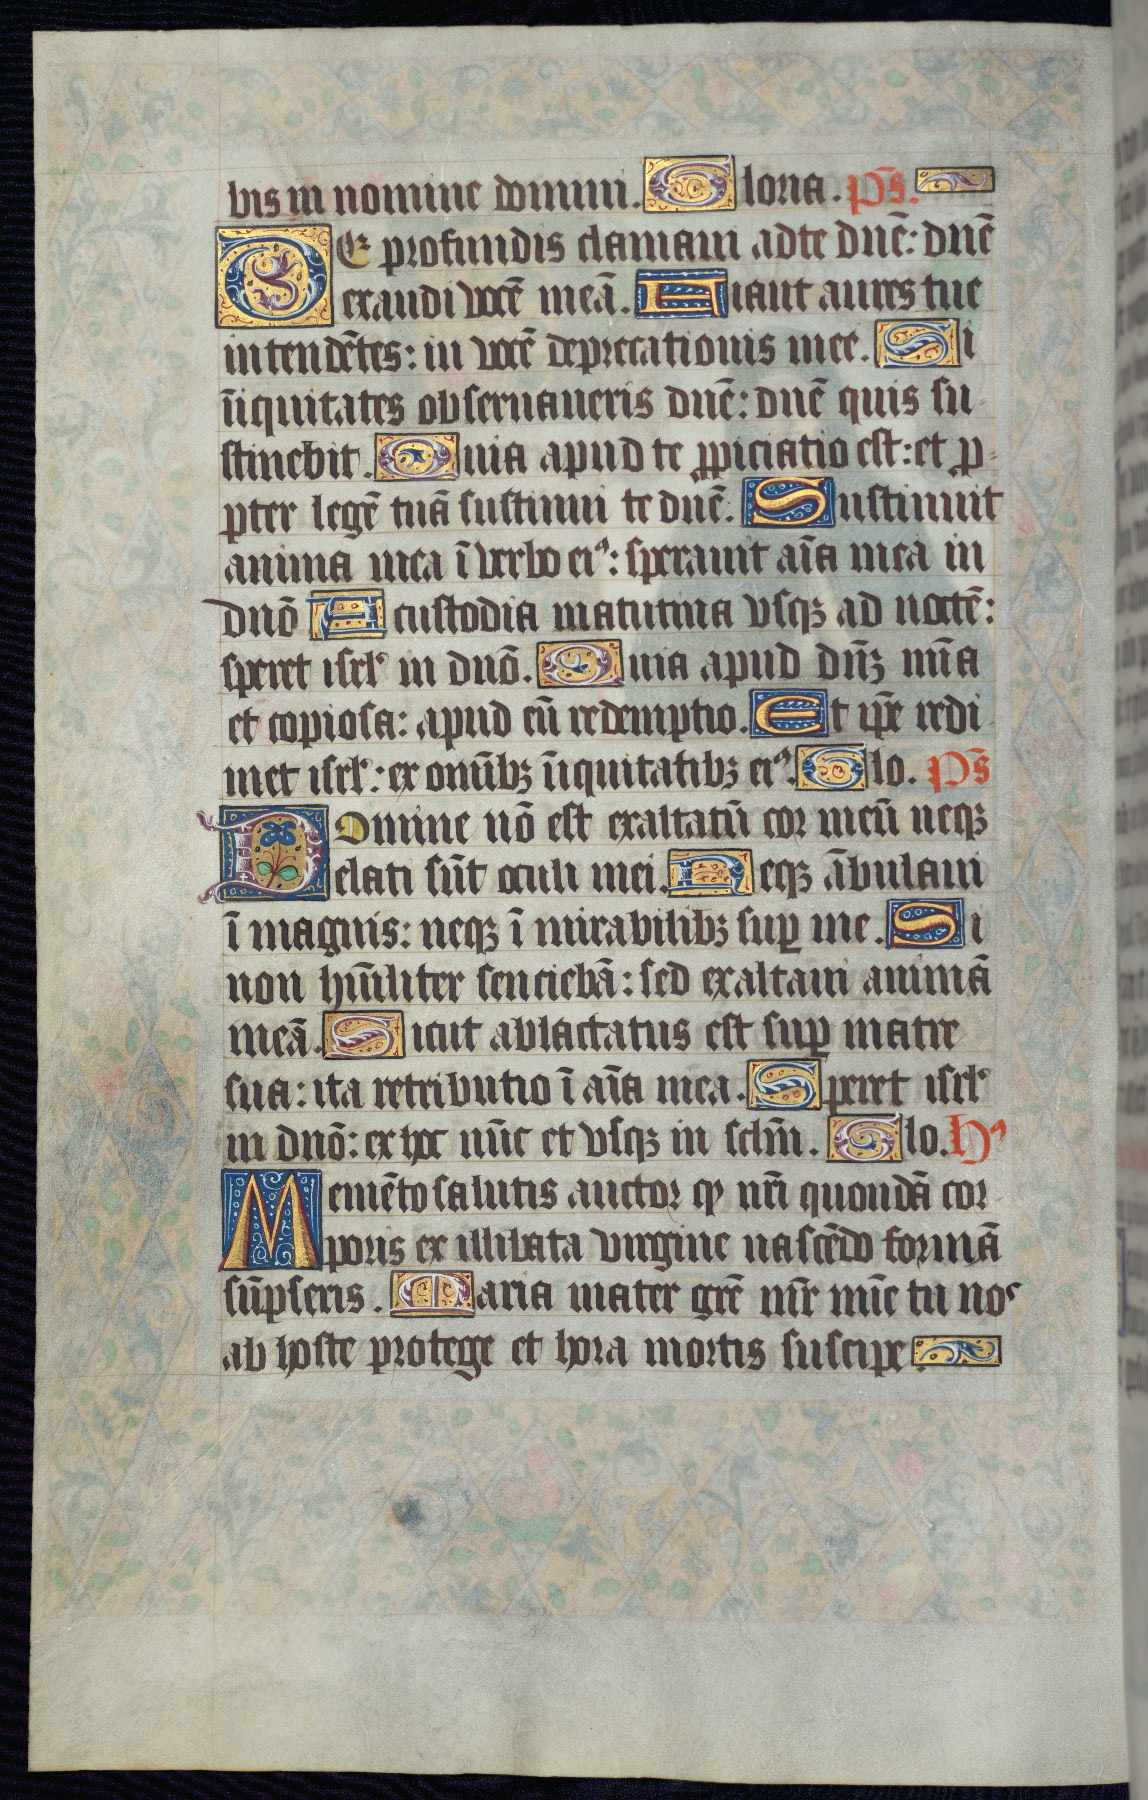 bis in nomine domini. Gloria. ps̄.
De profundis clamaui ad te dn̄e: dn̄e
exaudi vocē meā. Fiant aures tue
intendētes: in vocē deprecationis mee. Si
īiquitates obseruaueris dn̄e: dn̄e quis su
stinebit. Quia apud te ꝓpiciatio est: et ꝓ
pter legē tuā sustinui te dn̄e. Sustinuit
anima mea ī verbo eiꝰ: sperauit aīa mea in
dn̄o A custodia matutina vsqꝫ ad noctē:
speret isrl̄ in dn̄o. Quia apud dn̄ꝫ mīa
et copiosa: apud eū redemptio. Et ip̄e redi
met isrl̄: ex om̄ībꝫ īiquitatibꝫ eiꝰ. Glo. Ps̄
Domine nō est exaltatū cor meū neqꝫ
elati sūt oculi mei. Neqꝫ ābulaui
ī magnis: neqꝫ ī mirabilibꝫ suꝑ me. Si
non hūiliter senciebā: sed exaltaui animā
meā. Sicut ablactatus est suꝑ matre
sua: ita retributio ī aīa mea. Speret isrl̄
in dn̄o: ex hoc nūc et vsqꝫ in sclm̄. Glo. Hꝰ
Memēto salutis auctor ꝙ nr̄i quondā cor
poris ex illibata virgine nascēdo formā
sūpseris. Maria mater grē mr̄ mīe tu nos
ab hoste protege et hora mortis suscipe